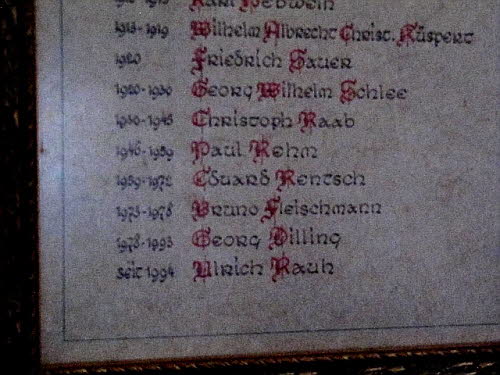 Karl
1913-1919 Wilhelm Albrecht Christ. Küspert
1920 Friedrich Sauer
1920-1930 Georg Wilhelm Schlee
1930-1945 Christoph Raab
1946-1959 Paul Rehm
1959-1972 Eduard Rentsch
1973-1978 Bruno Fleischmann
1978-1993 Georg Dilling
seit 1994 Ulrich Rauh